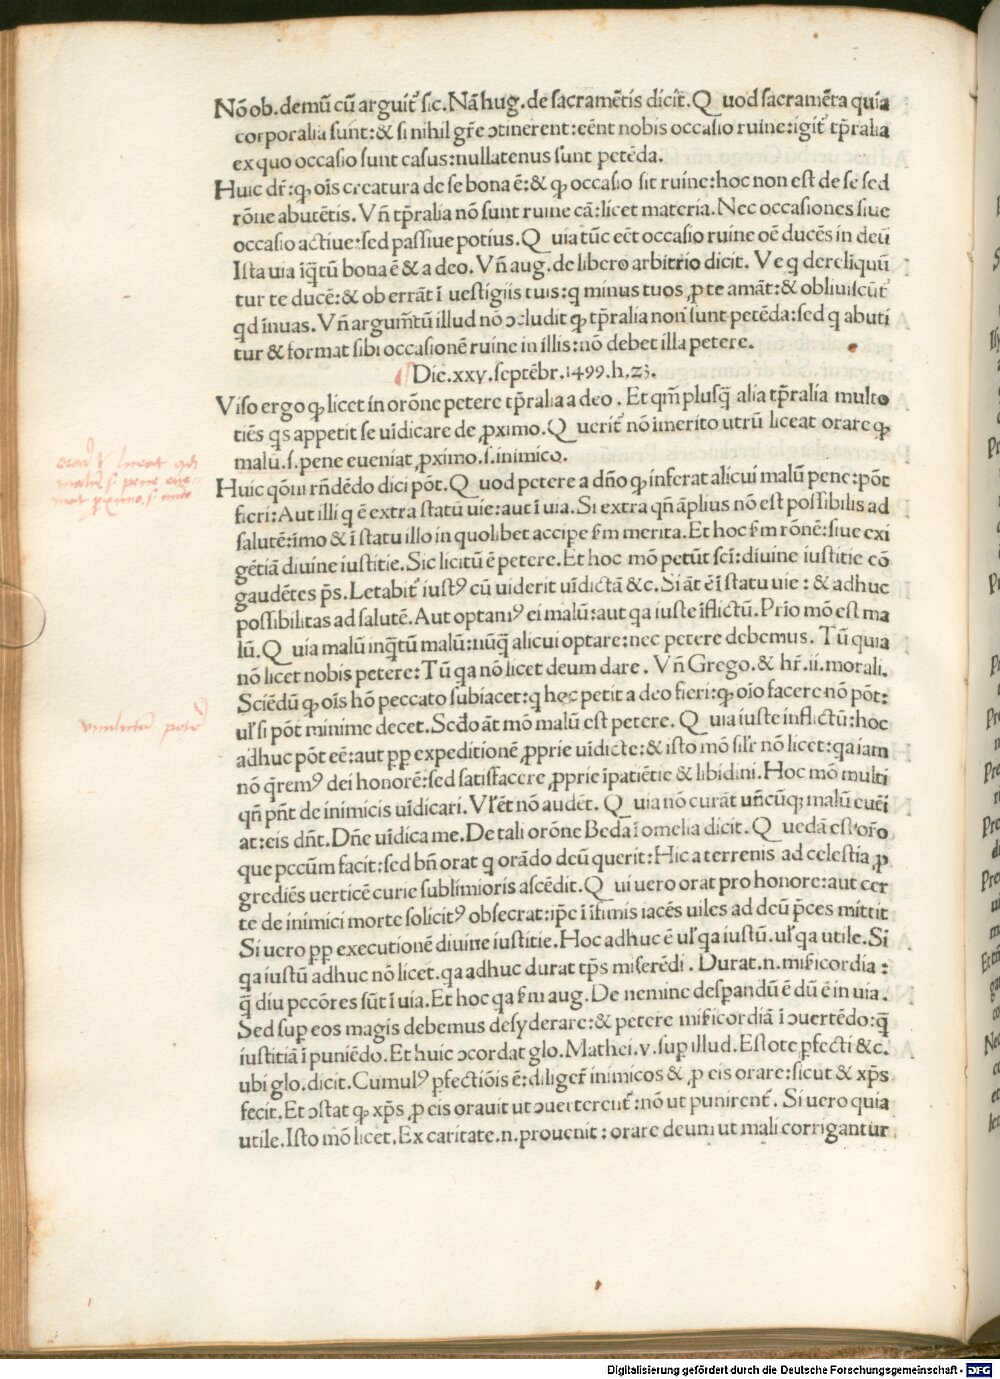 Nō ob. demū cū arguit᷑ sic. Nā hug. de sacramētis dicit. Quod sacramēta quia
corporalia sunt: & si nihil gr̄e ↄtinerent: eēnt nobis occasio ruine: igit᷑ tp̄ralia
ex quo occasio sunt casus: nullatenus sunt petēda.
Huic dr̄: ꝙ oīs creatura de se bona ē: & ꝙ occasio sit ruine: hoc non est de se sed
rōne abutētis. Vn̄ tp̄ralia nō sunt ruine cā: licet materia. Nec occasiones siue
occasio actiue: sed passiue potius. Quia tūc eēt occasio ruine oē ducēs in deū
Ista uia īq̄tū bona ē & a deo. Vn̄ aug. de libero arbitrio dicit. Ve q derelīquū
tur te ducē: & ob errāt ī uestigiis tuis: q minus tuos ꝓ te amāt: & obliuiscūt᷑
qd īnuas. Vn̄ argumētū illud nō ↄcludit ꝙ tp̄ralia non sunt petēda: sed q abuti
tur & format sibi occasionē ruine in illis: nō debet illa petere.
Die. xxv. septēbr. 1499. h. 23.
Viso ergo ꝙ licet in orōne petere tp̄ralia a deo. Et qm̄ plusq̄ alia tp̄ralia multo
tiēs qs appetit se uīdicare de ꝓximo. Querit᷑ nō īmerito utrū liceat orare ꝙ
malū. s. pene eueniat ꝓximo. s. inimico.
orare liceat qd
malum s. pene eue-
niat proximo. s. inico
Huic qōni rn̄dēdo dici pōt. Quod petere a dn̄o ꝙ inferat alicui malū pene: pōt
fieri: Aut illi q ē extra statū uie: aut ī uia. Si extra qn̄ āplius nō est possibilis ad
salutē: īmo & ī statu illo in quolibet accipe ẜm merita. Et hoc ẜm rōnē: siue exi
gētiā diuine iustitie. Sic licitū ē petere. Et hoc mō petūt scī: diuine iustitie cō
gaudētes p̄s. Letabit᷑ iustꝰ cū uiderit uīdictā &c. Si āt ē ī statu uie: & adhuc
possibilitas ad salutē. Aut optamꝰ ei malū: aut qa iuste īflictū. Prio mō est ma
lū. Quia malū inq̄tū malū: nūq̄ alicui optare: nec petere debemus. Tū quia
nō licet nobis petere: Tū qa nō licet deum dare. Vn̄ Grego. & hr̄. ii. morali.
Sciēdū ꝙ oīs hō peccato subiacet: q hec petit a deo fieri: ꝙ oīo facere nō pōt:
uł si pōt minime decet. Secdo āt mō malū est petere. Quia iuste inflictū: hoc
vindictam petere
adhuc pōt eē: aut pp expeditionē ꝓprie uīdicte: & isto mō silr̄ nō licet: qa iam
nō q̄remꝰ dei honorē: sed satisfacere ꝓprie īpatiētie & libidini. Hoc mō multi
qn̄ pn̄t de inimicis uīdicari. Vłēt nō audēt. Quia nō curāt un̄cūqꝫ malū euēi
at: eis dn̄t. Dn̄e uīdica me. De tali orōne Beda ī omelia dicit. Quedā est or̄o
que pccūm facit: sed bn̄ orat q orādo deū querit: Hic a terrenis ad celestia ꝓ
grediēs uerticē curie sublimioris ascēdit. Qui uero orat pro honore: aut cer
te de inimici morte solicitꝰ obsecrat: ip̄e ī īfimis iacēs uiles ad deū p̄ces mittit
Si uero pp executionē diuine iustitie. Hoc adhuc ē uł qa iustū. uł qa utile. Si
qa iustū adhuc nō licet. qa adhuc durat tp̄s miserēdi. Durat. n. mīẜicordia:
q̄ diu pccōres sūt ī uia. Et hoc qa ẜm aug. De nemine despandū ē dū ē in uia.
Sed sup eos magis debemus desyderare: & petere mīẜicordiā ī ↄuertēdo: q̄
iustitiā ī puniēdo. Et huic ↄcordat glo. Mathei. v. sup illud. Estote ꝑfecti &c.
ubi glo. dicit. Cumulꝰ ꝑfectiōis ē: diliger̄ inimicos & ꝓ eis orare: sicut & xp̄s
fecit. Et ↄstat ꝙ xp̄s ꝓ eis orauit ut ↄuerterent᷑: nō ut punirent᷑. Si uero quia
utile. Isto mō licet. Ex caritate. n. prouenit: orare deum ut mali corrigantur
Digitalisierung gefördert durch die Deutsche Forschungsgemeinschaft - DFG